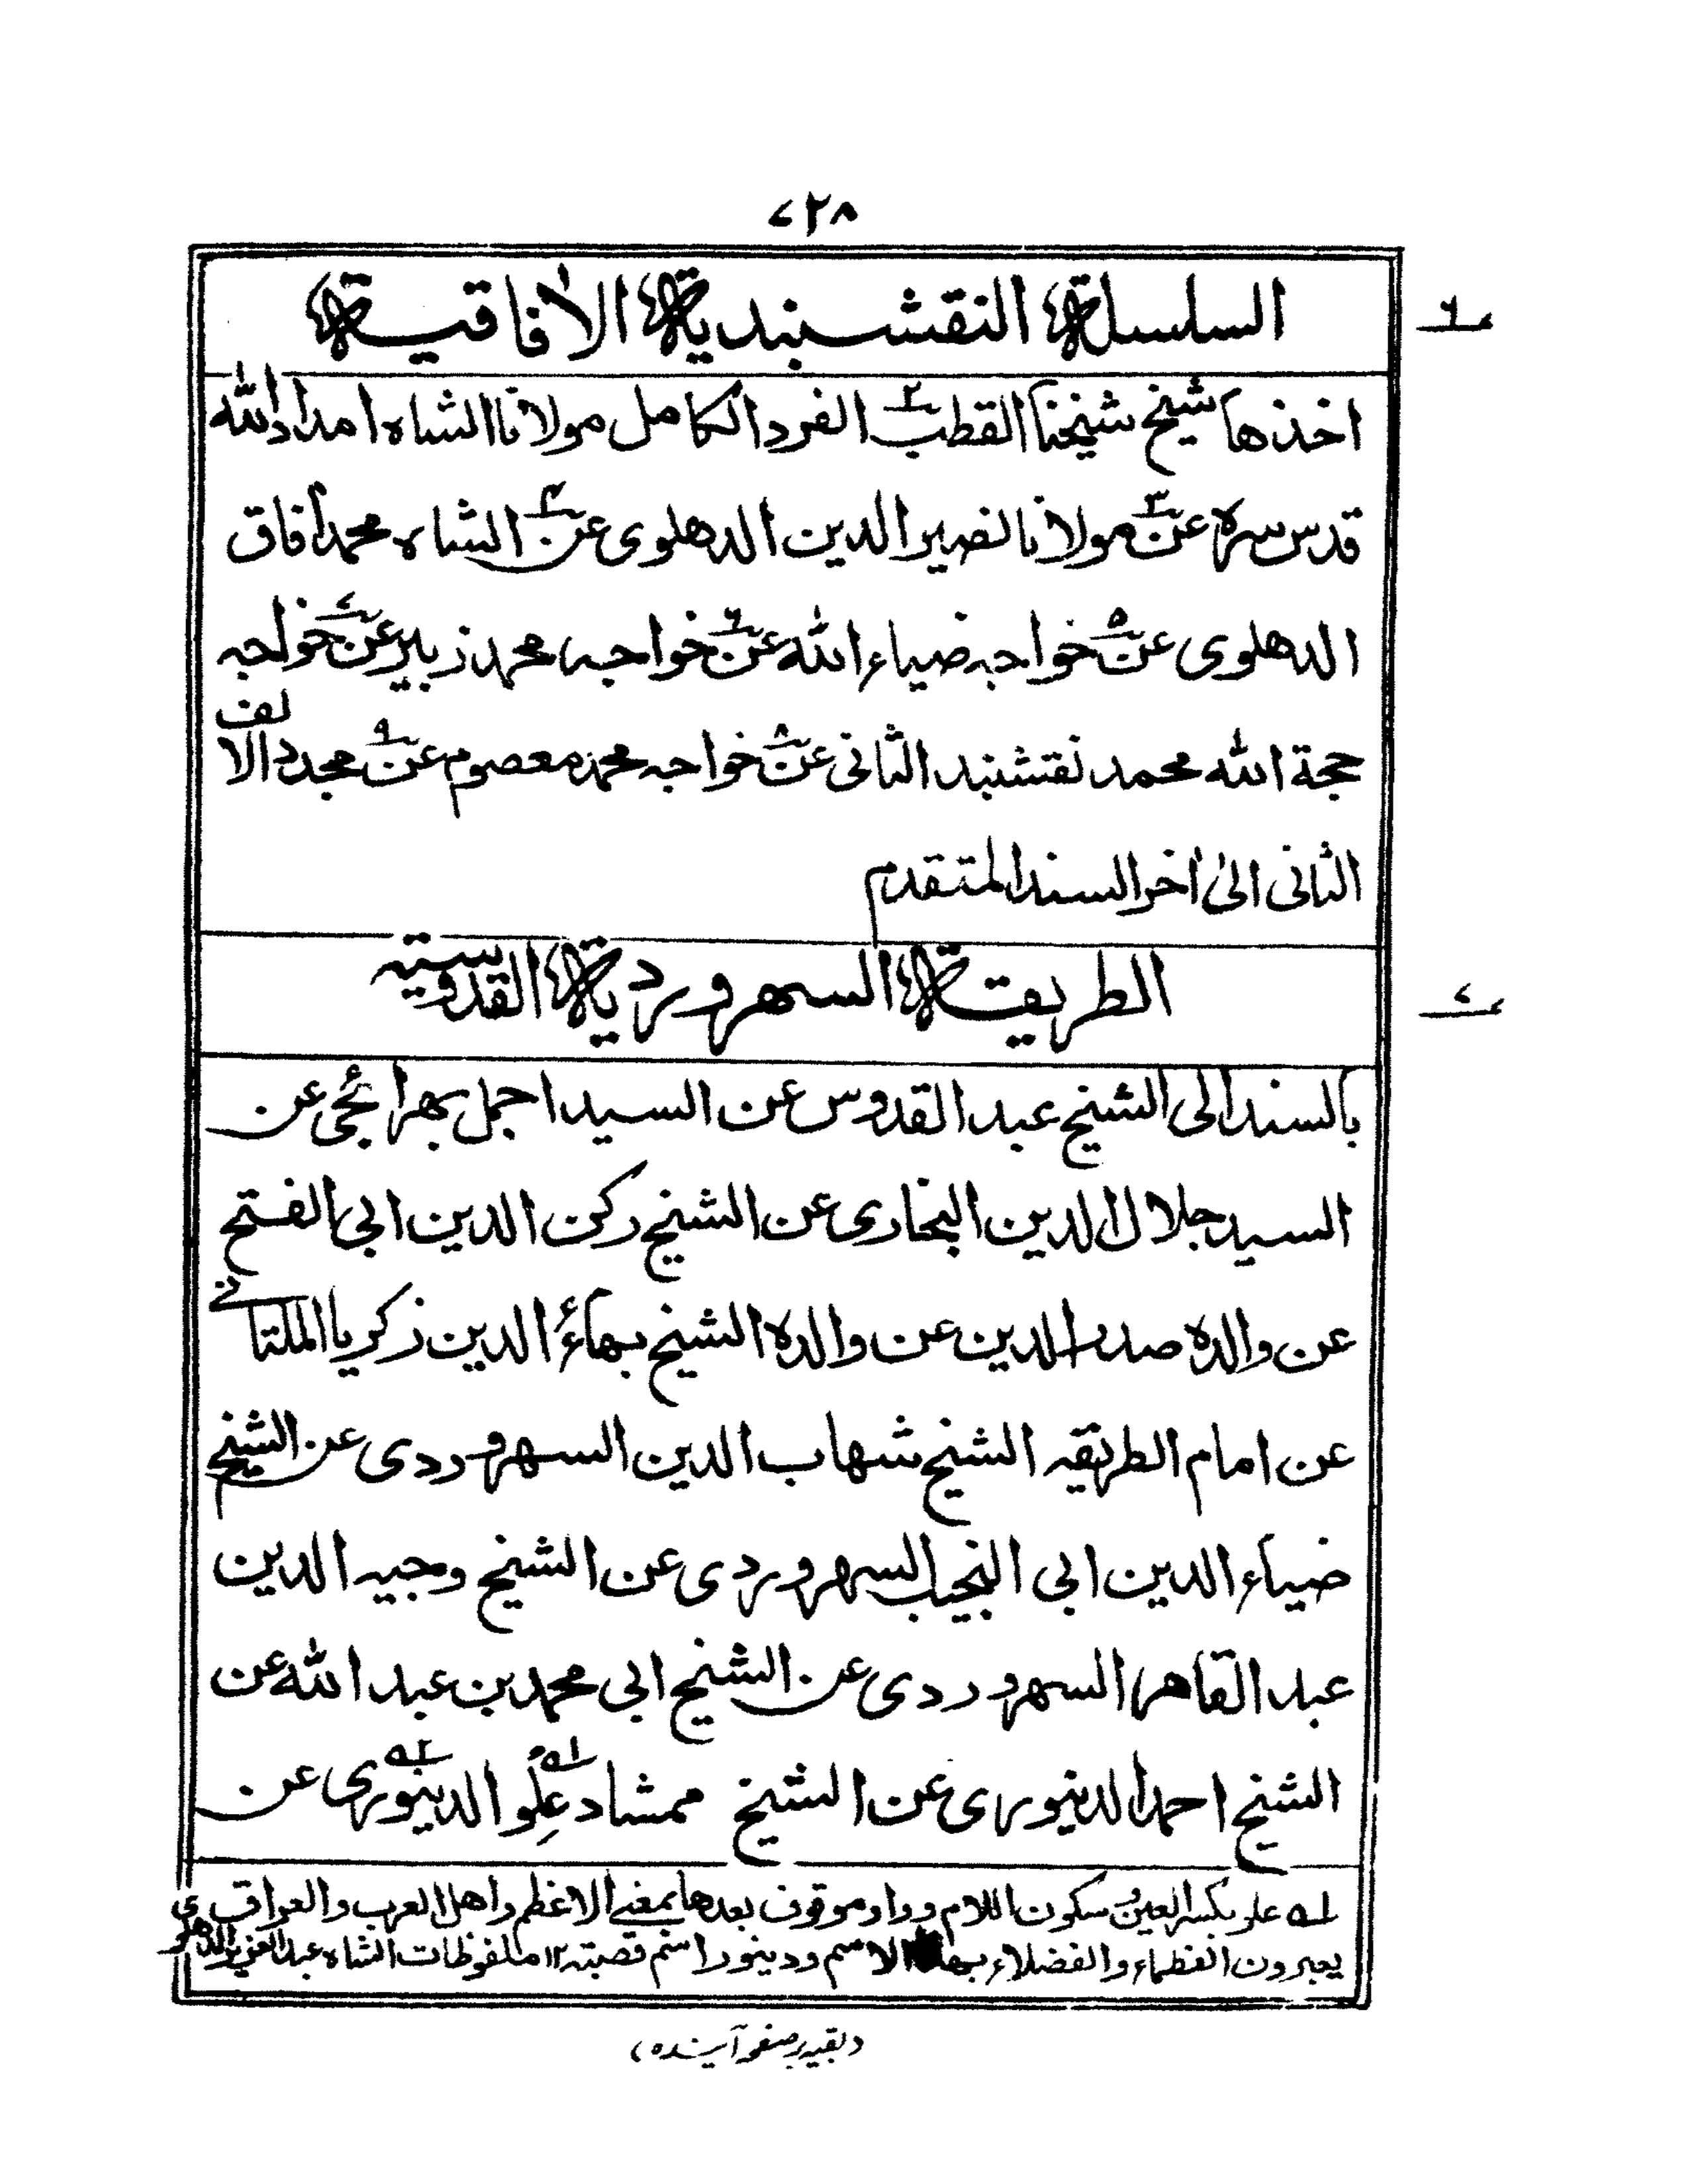 ۷۲۸
السلسلة النقشبندية الاٰفاقية
۶
اخذها شیخ شیخنا القطب۲ الفرد الکامل مولانا الشاہ امداد اللّٰه
قدس سرہ عن۳ مولانا نصیر الدین الدهلوی عن۴ الشاہ محمد اٰفاق
الدهلوی عن۵ خواجہ ضیاء اللّٰه عن۶ خواجہ محمد زبیر عن۷ خواجہ
حجة اللّٰه محمد نقتشنبد الثانی عن۸ خواجہ محمد معصوم عن۹ مجدد الالف
الثانی الیٰ اٰخر السند المتقدم
الطریقة السهروردیة القدوسیتہ
۷
بالسند الی الشیخ عبد القدوس عن السید اجمل بهرائچی عن
السید جلال الدین البخاری عن الشیخ رکن الدین ابی الفتح
عن والدہ صدر الدین عن والدہ الشیخ بهائ الدین زکریا الملتانے
عن امام الطریقہ الشیخ شهاب الدین السهروردی عن الشیخ
ضیاء الدین ابی النجیب السهروردی عن الشیخ وجیہ الدین
عبد القاهر السهروردی عن الشیخ ابی محمد بن عبد اللّٰه عن
الشیخ احمد الدنیوری عن الشیخ ممشاد عِلو۱ الدینوری۲ عن
۱ علو بکسر العین و سکون اللام و واو موقوف بعدها بمعنی الاعظم واهل العرب والعراق
یعبرون العظماء والفضلاء بهذا الاسم و دینور اسم قصبتہ ۱۲ ملفوظات الشاہ عبد العزیز الدهلوی
(بقیہ بر صفحہ آیندہ)